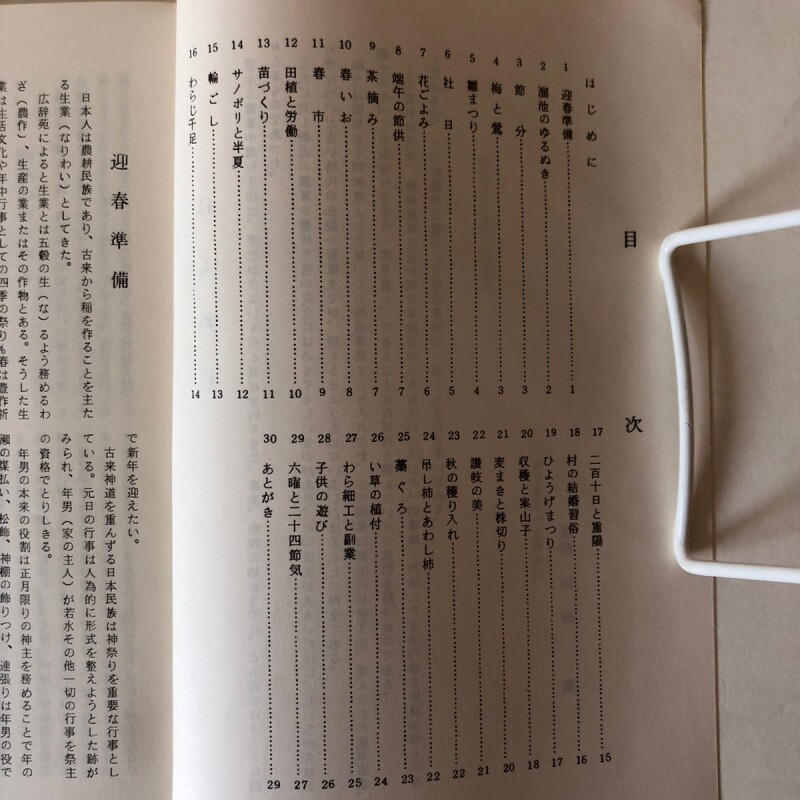 目次
はじめに
1 迎春準備……1
2 溜池のゆるぬき……2
3 節分……3
4 梅と鶯……3
5 雛まつり……4
6 社日……5
7 花ごよみ……6
8 端午の節供……7
9 茶摘み……7
10 春いお……8
11 春市……9
12 田植と労働……10
13 苗づくり……11
14 サノボリと半夏……12
15 輪ごし……13
16 わらじ千足……14
17 二百十日と重陽……15
18 村の結婚習俗……16
19 ひょうげまつり……17
20 収穫と案山子……18
21 麦まきと株切り……20
22 讃岐の美……21
23 秋の穫り入れ……22
24 吊し柿とあわし柿……22
25 藁ぐろ……23
26 い草の植付……24
27 わら細工と副業……25
28 子供の遊び……26
29 六曜と二十四節気……27
30 あとがき……29
迎春準備
日本人は農耕民族であり、古来から稲を作ることを主た
る生業（なりわい）としてきた。
広辞苑によると生業とは五穀の生（な）るよう務めるわ
ざ（農作）、生産の業またはその作物とある。そうした生
業は生活文化や年中行事としての四季の祭りも春は豊作祈
で新年を迎えたい。
古来神道を重んずる日本民族は神祭りを重要な行事とし
ている。元日の行事は人為的に形式を整えようとした跡が
みられ、年男（家の主人）が若水その他一切の行事を祭主
の資格でとりしきる。
年男の本来の役割は正月限りの神主を務めることで年の
瀬の煤払い、松飾、神棚の飾りつけ、連張りは年男の役で